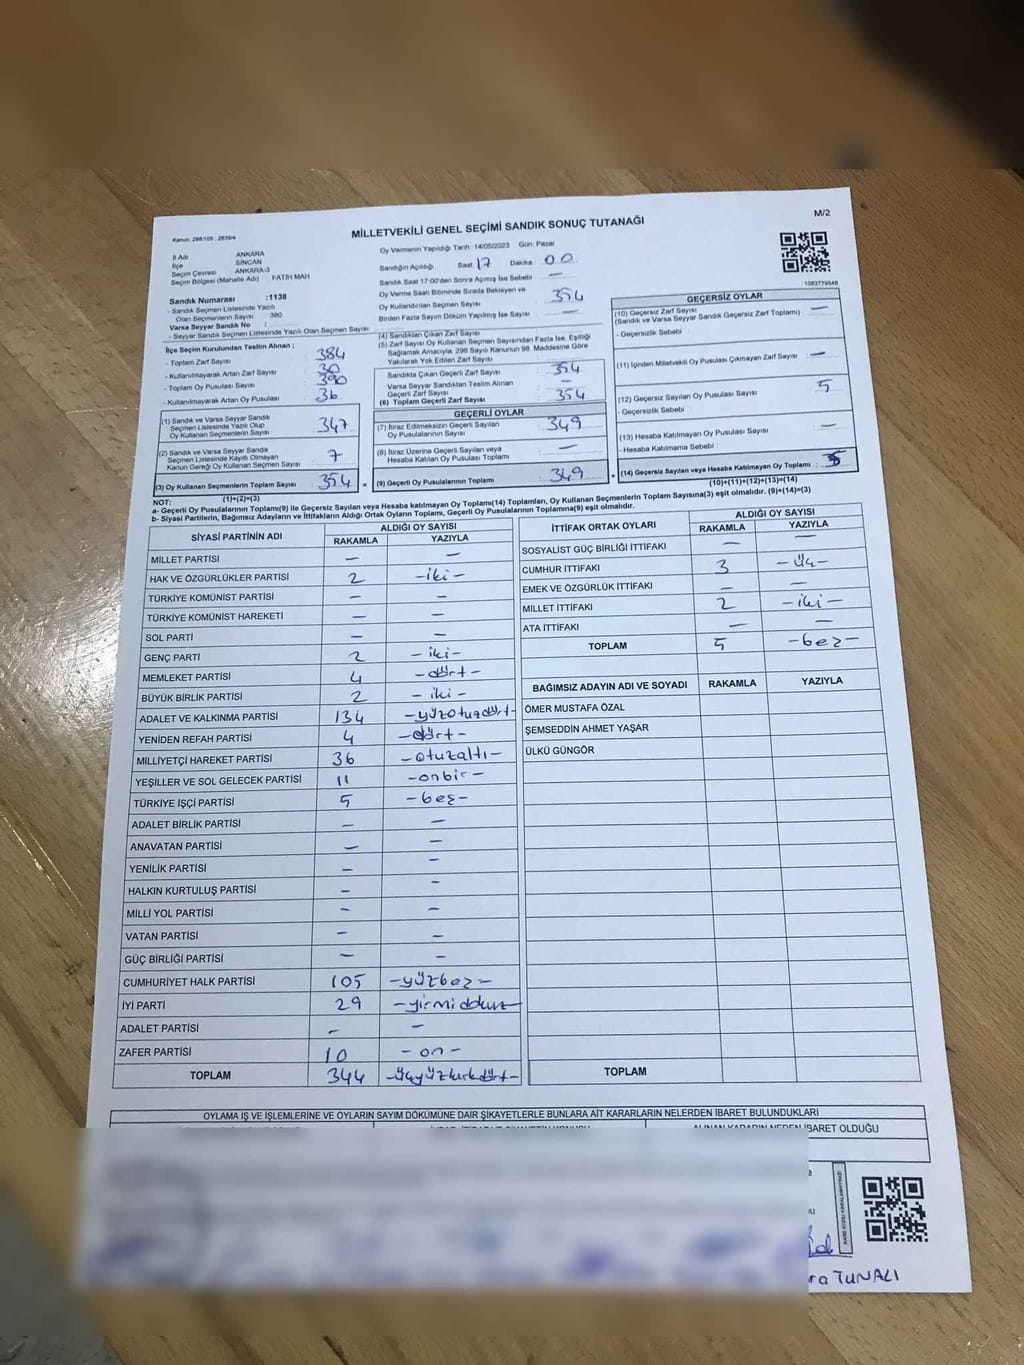 M/2
MİLLETVEKİLİ GENEL SEÇİMİ SANDIK SONUÇ TUTANAĞI
Kanun: 298/105 , 2839/4
Oy Vermenin Yapıldığı Tarih :14/05/2023 Gün: Pazar
İl Adı ANKARA
İlçe SİNCAN
Seçim Çevresi ANKARA-3
Seçim Bölgesi (Mahalle Adı) FATİH MAH
Sandık Numarası :1138
- Sandık Seçmen Listesinde Yazılı
Olan Seçmenlerin Sayısı 380
Varsa Seyyar Sandık No :
- Seyyar Sandık Seçmen Listesinde Yazılı Olan Seçmen Sayısı
Sandığın Açıldığı Saat 17 Dakika 00
Sandık Saat 17:00'den Sonra Açılmış İse Sebebi —
Oy Verme Saati Bitiminde Sırada Bekleyen ve
Oy Kullandırılan Seçmen Sayısı 354
Birden Fazla Sayım Döküm Yapılmış İse Sayısı —
1083779548
İlçe Seçim Kurulundan Teslim Alınan ;
- Toplam Zarf Sayısı 384
- Kullanılmayarak Artan Zarf Sayısı 30
- Toplam Oy Pusulası Sayısı 390
- Kullanılmayarak Artan Oy Pusulası 36
(1) Sandık ve Varsa Seyyar Sandık
Seçmen Listesinde Yazılı Olup
Oy Kullanan Seçmenlerin Sayısı 347
(2) Sandık ve Varsa Seyyar Sandık
Seçmen Listesinde Kayıtlı Olmayan
Kanun Gereği Oy Kullanan Seçmen Sayısı 7
(3) Oy Kullanan Seçmenlerin Toplam Sayısı 354
(1)+(2)=(3)
(4) Sandıktan Çıkan Zarf Sayısı
(5) Zarf Sayısı Oy Kullanan Seçmen Sayısından Fazla İse, Eşitliği
Sağlamak Amacıyla, 298 Sayılı Kanunun 98. Maddesine Göre
Yakılarak Yok Edilen Zarf Sayısı
Sandıkta Çıkan Geçerli Zarf Sayısı 354
Varsa Seyyar Sandıktan Teslim Alınan
Geçerli Zarf Sayısı —
(6) Toplam Geçerli Zarf Sayısı 354
GEÇERLİ OYLAR
(7) İtiraz Edilmeksizin Geçerli Sayılan
Oy Pusulalarının Sayısı 349
(8) İtiraz Üzerine Geçerli Sayılan veya
Hesaba Katılan Oy Pusulası Toplamı —
= (9) Geçerli Oy Pusulalarının Toplamı 349
GEÇERSİZ OYLAR
(10) Geçersiz Zarf Sayısı —
(Sandık ve Varsa Seyyar Sandık Geçersiz Zarf Toplamı)
- Geçersizlik Sebebi :
(11) İçinden Milletvekili Oy Pusulası Çıkmayan Zarf Sayısı —
(12) Geçersiz Sayılan Oy Pusulası Sayısı 5
- Geçersizlik Sebebi :
(13) Hesaba Katılmayan Oy Pusulası Sayısı —
- Hesaba Katılmama Sebebi :
+ (14) Geçersiz Sayılan veya Hesaba Katılmayan Oy Toplamı 5
(10)+(11)+(12)+(13)=(14)
NOT:
a- Geçerli Oy Pusulalarının Toplamı(9) ile Geçersiz Sayılan veya Hesaba Katılmayan Oy Toplamı(14) Toplamları, Oy Kullanan Seçmenlerin Toplam Sayısına(3) eşit olmalıdır. (9)+(14)=(3)
b- Siyasi Partilerin, Bağımsız Adayların ve İttifakların Aldığı Ortak Oyların Toplamı, Geçerli Oy Pusulalarının Toplamına(9) eşit olmalıdır.
SİYASİ PARTİNİN ADI ALDIĞI OY SAYISI
RAKAMLA YAZIYLA
MİLLET PARTİSİ — —
HAK VE ÖZGÜRLÜKLER PARTİSİ 2 -iki-
TÜRKİYE KOMÜNİST PARTİSİ — —
TÜRKİYE KOMÜNİST HAREKETİ — —
SOL PARTİ — —
GENÇ PARTİ 2 -iki-
MEMLEKET PARTİSİ 4 -dört-
BÜYÜK BİRLİK PARTİSİ 2 -iki-
ADALET VE KALKINMA PARTİSİ 134 -yüzotuzdört-
YENİDEN REFAH PARTİSİ 4 -dört-
MİLLİYETÇİ HAREKET PARTİSİ 36 -otuzaltı-
YEŞİLLER VE SOL GELECEK PARTİSİ 11 -onbir-
TÜRKİYE İŞÇİ PARTİSİ 5 -beş-
ADALET BİRLİK PARTİSİ — —
ANAVATAN PARTİSİ — —
YENİLİK PARTİSİ — —
HALKIN KURTULUŞ PARTİSİ — —
MİLLİ YOL PARTİSİ — —
VATAN PARTİSİ — —
GÜÇ BİRLİĞİ PARTİSİ — —
CUMHURİYET HALK PARTİSİ 105 -yüzbeş-
İYİ PARTİ 29 -yirmidokuz-
ADALET PARTİSİ — —
ZAFER PARTİSİ 10 -on-
TOPLAM 344 -üçyüzkırkdört-
İTTİFAK ORTAK OYLARI ALDIĞI OY SAYISI
RAKAMLA YAZIYLA
SOSYALİST GÜÇ BİRLİĞİ İTTİFAKI — —
CUMHUR İTTİFAKI 3 -üç-
EMEK VE ÖZGÜRLÜK İTTİFAKI — —
MİLLET İTTİFAKI 2 -iki-
ATA İTTİFAKI — —
TOPLAM 5 -beş-
BAĞIMSIZ ADAYIN ADI VE SOYADI RAKAMLA YAZIYLA
ÖMER MUSTAFA ÖZAL
ŞEMSEDDİN AHMET YAŞAR
ÜLKÜ GÜNGÖR
TOPLAM
OYLAMA İŞ VE İŞLEMLERİNE VE OYLARIN SAYIM DÖKÜMÜNE DAİR ŞİKAYETLERLE BUNLARA AİT KARARLARIN NELERDEN İBARET BULUNDUKLARI
ALINAN KARARIN NEDEN İBARET OLDUĞU
ra TUNALI